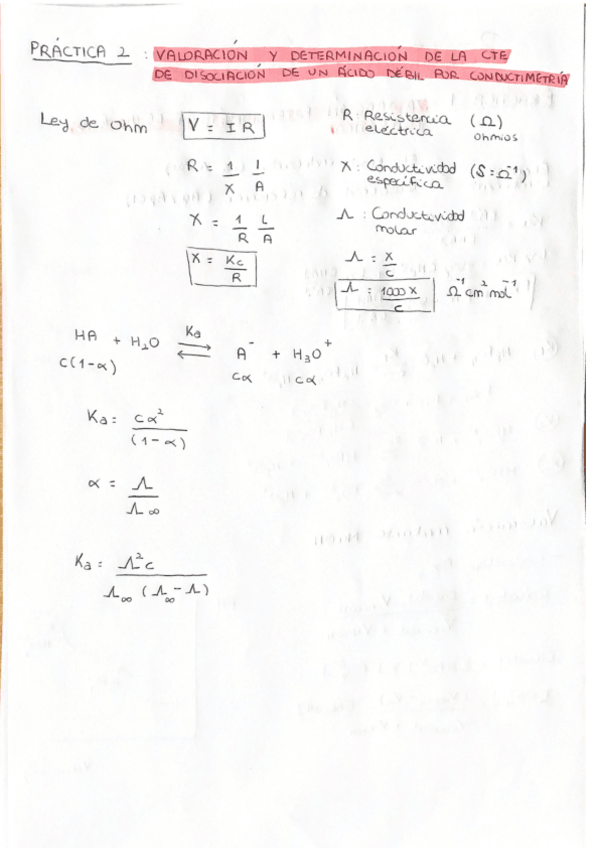 PRÁCTICA 2 : VALORACIÓN Y DETERMINACIÓN DE LA CTE
DE DISOCIACIÓN DE UN ÁCIDO DÉBIL POR CONDUCTIMETRÍA
Ley de Ohm V = I R R: Resistencia eléctrica (Ω) ohmios
R = 1/X l/A X: Conductividad específica (S = Ω⁻¹)
X = 1/R L/A Λ : Conductividad molar
X = Kc/R Λ = X/c
Λ = 1000 X/c Ω⁻¹ cm² mol⁻¹
HA + H₂O ⇌ Ka A⁻ + H₃O⁺
c(1-α) cα cα
Ka = cα²/(1-α)
α = Λ/Λ∞
Ka = Λ²c/Λ∞ (Λ∞ - Λ)